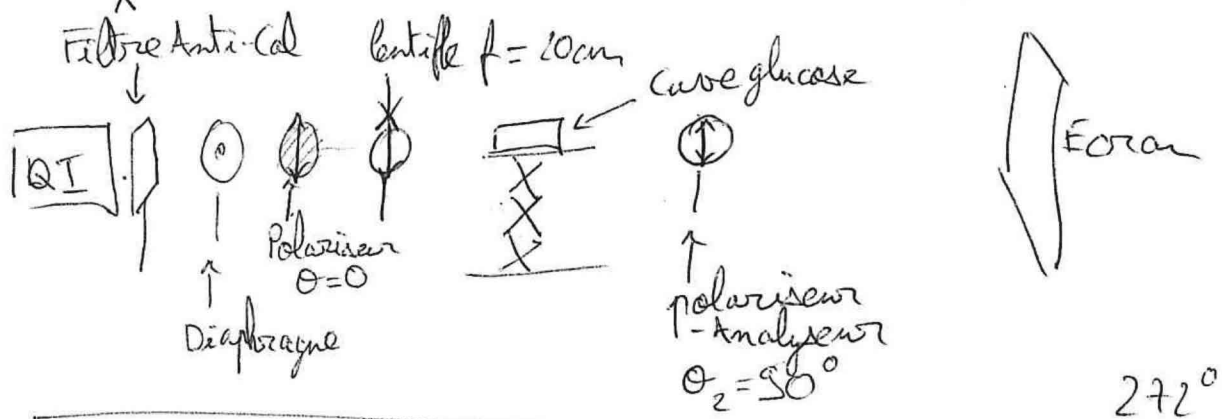 Filtre Anti-Cal
lentille f = 20cm
Cuve glucose
QI
Écran
Polariseur
θ=0
Diaphragme
polariseur
-Analyseur
θ₂=90°
272°